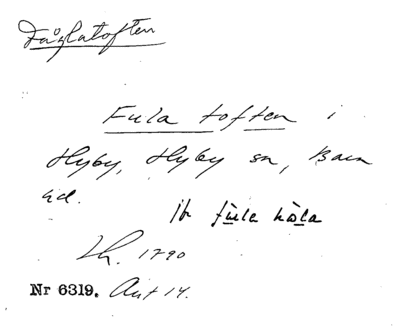 Fåglatoften
Fula toften i
Hyby, Hyby sn, Bara
hd.
jfr fùla hòla
Lh. 1790
Nr 6319. Avt 14.